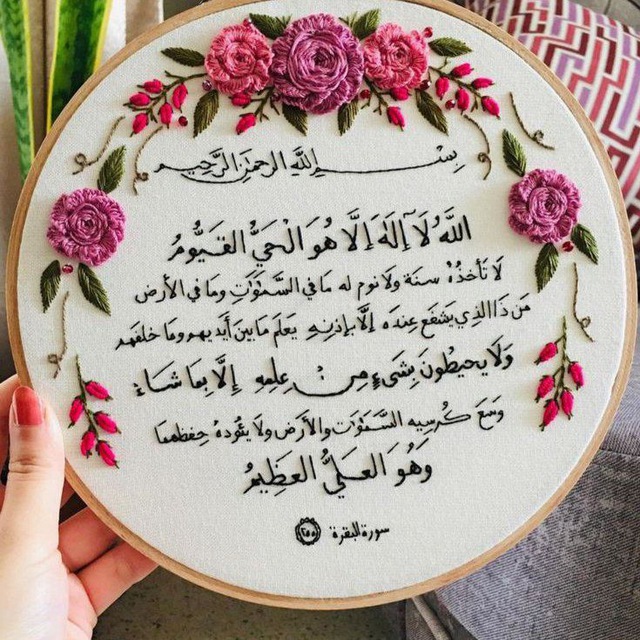 بِسْـــمِ اللَّهِ الرَّحمنِ الرَّحِيمِ
اللَّهُ لَا إِلَٰهَ إِلَّا هُوَ الْحَيُّ القَيُّومُ
لَا تَأْخُذُهُ سِنَةٌ وَلَا نَوم له مَا فِي السَّمَٰوَٰتِ وَمَا فِي الأَرْض
مَن ذَا الَّذِي يَشفَعُ عِندَه إِلَّا بِإِذنِهِ يَعلَمُ مَا بَينَ أَيدِيهِم وَمَا خلفَهم
وَلَا يحيطُونَ بِشَيءٍ مِن عِلمِهِ إِلَّا بِمَا شَاءَ
وَسِعَ كُرسِيه السَّمَٰوَٰت والأَرضَ ولَا يَـُٔودُه حِفظهمَا
وَهُوَ العَلِيُّ العَظِيمُ
سورة البقرة ٢٥٥